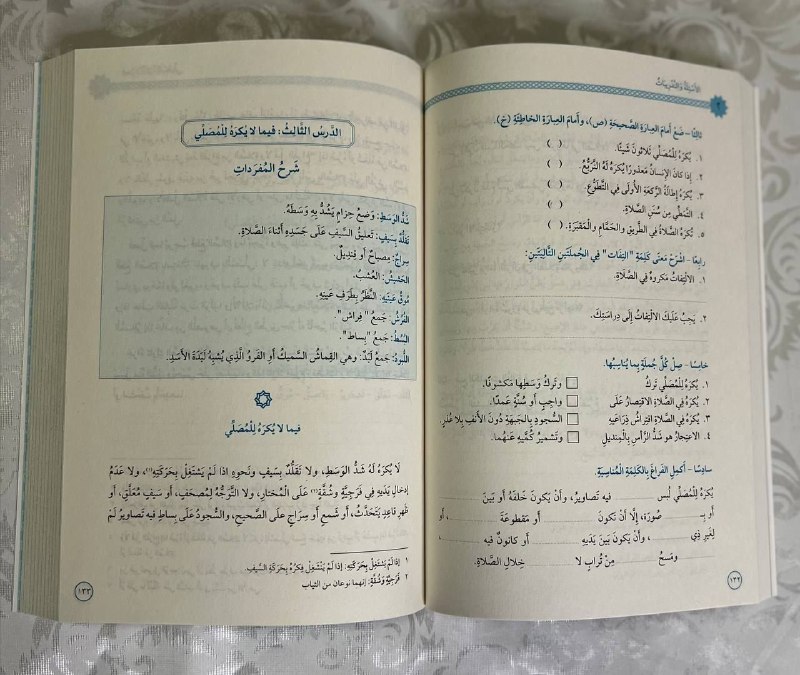 الأَسْئِلَةُ وَالتَّدْرِيبَاتُ
ثالثًا - ضَعْ أمامَ العِبارَةِ الصَّحيحَةِ (ص)، وأمامَ العِبارَةِ الخاطِئَةِ (خ).
١. يُكرَهُ لِلْمُصَلِّي ثَلاثونَ شَيئًا. ( )
٢. إذا كانَ الإنسانُ مَعذورًا يُكرَهُ لَهُ التَّرَبُّعُ. ( )
٣. يُكرَهُ إطالَةُ الرَّكعَةِ الأولَى فِي التَّطَوُّعِ. ( )
٤. التَّمَطِّي مِن سُنَنِ الصَّلاةِ. ( )
٥. تُكرَهُ الصَّلاةُ فِي الطَّريقِ والحَمَّامِ والْمَقبَرَةِ. ( )
رابعًا - اشْرَحْ مَعنَى كَلِمَةِ "التِفات" فِي الجُملَتَينِ التَّالِيَتَينِ:
١. الالتِفاتُ مَكروهٌ فِي الصَّلاةِ.
٢. يَجِبُ عَلَيكَ الالتِفاتُ إلَى دِراسَتِكَ.
خامسًا - صِلْ كُلَّ جُملَةٍ بِما يُناسِبُها.
١. يُكرَهُ لِلْمُصَلِّي تَركُ □ وتَركُ وَسَطِها مَكشوفًا.
٢. يُكرَهُ فِي الصَّلاةِ الاقتِصارُ عَلَى □ واجِبٍ أو سُنَّةٍ عَمدًا.
٣. يُكرَهُ فِي الصَّلاةِ افتِراشُ ذِراعَيهِ □ السُّجودِ بِالجَبهَةِ دُونَ الأنفِ بِلا عُذرٍ.
٤. الاعتِجارُ هو شَدُّ الرَّأسِ بِالْمِنديلِ □ وتَشميرُ كُمَّيهِ عَنهُما.
سادسًا - أَكمِلِ الفَراغَ بِالكَلِمَةِ الْمُناسِبَةِ
يُكرَهُ لِلْمُصَلِّي لُبسُ فيه تَصاويرُ، وأن يَكونَ خَلفَهُ أو بَينَ
أو بِـ صُورَة، إلاَّ أن تَكونَ أو مَقطوعَةَ ، أو
لِغَيرِ ذِي ، وأن يَكونَ بَينَ يَدَيهِ أو كانونٌ فيه ،
ومَسحُ مِن تُرابٍ لا خِلالَ الصَّلاةِ.
١٣٢
الدَّرسُ الثَّالِثُ: فيما لا يُكرَهُ لِلْمُصَلِّي
شَرحُ الْمُفرَداتِ
شَدُّ الوَسَطِ: وَضعُ حِزامٍ يَشُدُّ بِهِ وَسَطَهُ.
تَقَلُّدٌ بِسَيفٍ: تَعليقُ السَّيفِ عَلَى جَسَدِهِ أثناءَ الصَّلاةِ.
سِراجٌ: مِصباحٌ أو قِنديلٌ.
الحَشيشُ: العُشبُ.
مُوقُ عَينَيهِ: النَّظَرُ بِطَرَفِ عَينِهِ.
الفُرُشُ: جَمعُ "فِراش".
البُسُطُ: جَمعُ "بِساط".
اللُّبودُ: جَمعُ لِبْدٍ: وهي القِماشُ السَّميكُ أو الفَروُ الَّذِي يُشبِهُ لِبْدَةَ الأسَدِ.
فيما لا يُكرَهُ لِلْمُصَلِّي
لَا يُكرَهُ لَهُ شَدُّ الوَسَطِ، ولا تَقَلُّدٌ بِسَيفٍ ونَحوِهِ إذا لَمْ يَشتَغِلْ بِحَرَكَتِهِ(١)، ولا عَدَمُ
إدخالِ يَدَيهِ فِي فَرَجِيَّةٍ وشُقَّةٍ(٢) عَلَى الْمُختارِ، ولا التَّوَجُّهُ لِمُصحَفٍ، أو سَيفٍ مُعَلَّقٍ، أو
ظَهرِ قاعِدٍ يَتَحَدَّثُ، أو شَمعٍ أو سِراجٍ عَلَى الصَّحيحِ، والسُّجودُ عَلَى بِساطٍ فيه تَصاويرُ لَمْ
١ إذا لَمْ يَشتَغِلْ بِحَرَكَتِهِ: إذا لَمْ يَنشَغِلْ فِكرُهُ بِحَرَكَةِ السَّيفِ.
٢ فَرَجِيَّةٍ وشُقَّةٍ: إنَّهما نوعان من الثياب
١٣٣